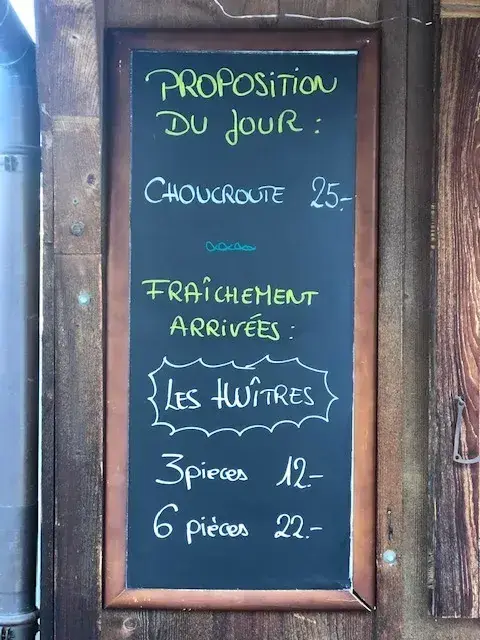 PROPOSITION
DU JOUR :
CHOUCROUTE 25.-
FRAÎCHEMENT
ARRIVÉES :
LES HUÎTRES
3 pieces 12.-
6 pièces 22.-